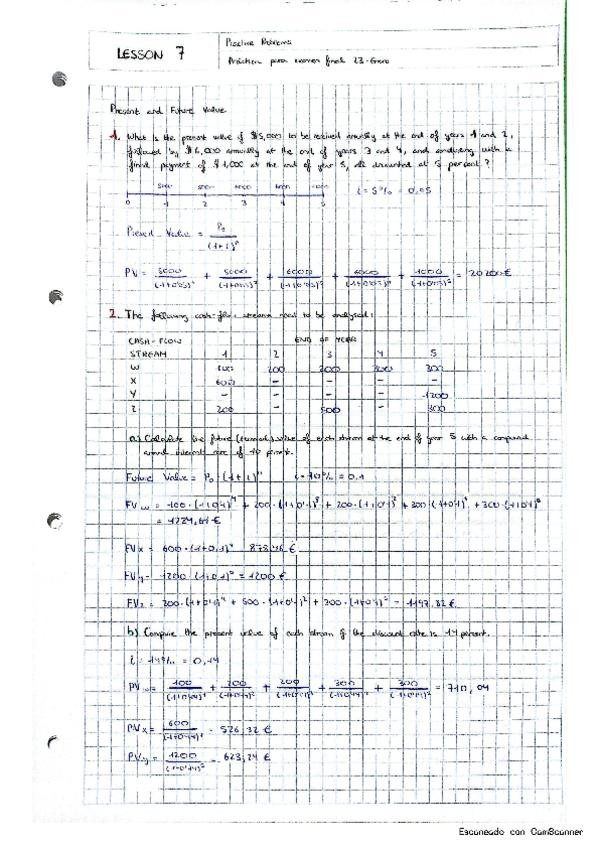 LESSON 7
Practice Problems
Practice para examen final 23-Enero
Present and Future Value
1. What is the present value of $5,000 to be received annually at the end of years 1 and 2,
followed by $6,000 annually at the end of years 3 and 4, and concluding with a
final payment of $1,000 at the end of year 5, all discounted at 5 percent?
5000 5000 6000 6000 1000
0 1 2 3 4 5
i = 5% = 0,05
Present Value = P₀ / (1+i)ⁿ
PV = 5000/(1+0'05)¹ + 5000/(1+0'05)² + 6000/(1+0'05)³ + 6000/(1+0'05)⁴ + 1000/(1+0'05)⁵ = 20200€
2. The following cash-flow streams need to be analysed:
CASH-FLOW END OF YEAR
STREAM 1 2 3 4 5
W 100 200 200 300 300
X 600 - - - -
Y - - - - 1200
Z 200 - 500 - 300
a) Calculate the future (terminal) value of each stream at the end of year 5 with a compound
annual interest rate of 10 percent.
Future Value = P₀ · (1+i)ⁿ i = 10% = 0.1
FVw = 100·(1+0'1)⁴ + 200·(1+0'1)³ + 200·(1+0'1)² + 300·(1+0'1)¹ + 300·(1+0'1)⁰
= 1224,61 €
FVx = 600·(1+0,1)⁴ 878,46 €
FVy = 1200·(1+0,1)⁰ = 1200 €
FVz = 200·(1+0'1)⁴ + 500·(1+0'1)² + 300·(1+0'1)⁰ = 1197,82 €
b) Compute the present value of each stream if the discount rate is 14 percent.
i = 14% = 0,14
PVw = 100/(1+0'14)¹ + 200/(1+0'14)² + 200/(1+0'14)³ + 300/(1+0'14)⁴ + 300/(1+0'14)⁵ = 710,04
PVx = 600/(1+0'14)¹ = 526,32 €
PVy = 1200/(1+0'14)⁵ = 623,24 €
Escaneado con CamScanner